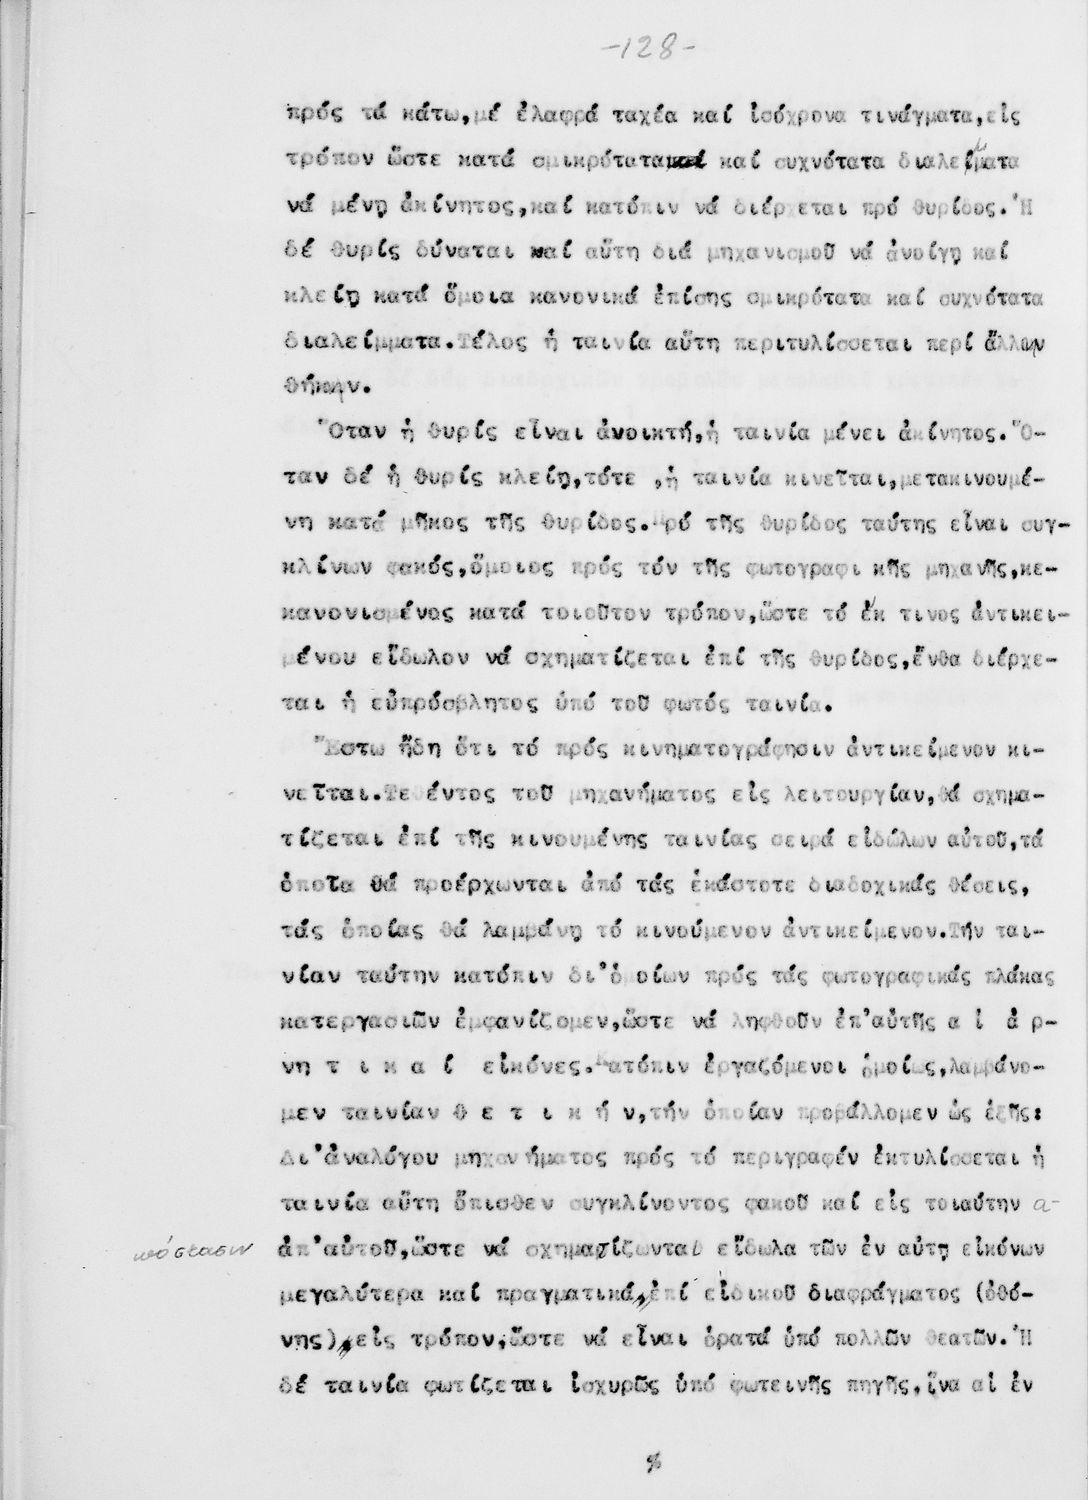 -128-
πρός τά κάτω,μέ ἐλαφρά ταχέα καί ἰσόχρονα τινάγματα,εἰς
τρόπον ὥστε κατά σμικρότατα καί συχνότατα διαλείμματα
νά μένῃ ἀκίνητος,καί κατόπιν νά διέρχεται πρό θυρίδος.Ἡ
δέ θυρίς δύναται καί αὕτη διά μηχανισμοῦ νά ἀνοίγῃ καί
κλείῃ κατά ὅμοια κανονικά ἐπίσης σμικρότατα καί συχνότατα
διαλείμματα.Τέλος ἡ ταινία αὕτη περιτυλίσσεται περί ἄλλην
θήκην.
Ὅταν ἡ θυρίς εἶναι ἀνοικτή,ἡ ταινία μένει ἀκίνητος.Ὅ-
ταν δέ ἡ θυρίς κλείῃ,τότε ,ἡ ταινία κινεῖται,μετακινουμέ-
νη κατά μῆκος τῆς θυρίδος.Πρό τῆς θυρίδος ταύτης εἶναι συγ-
κλίνων φακός,ὅμοιος πρός τόν τῆς φωτογραφι κῆς μηχανῆς,κε-
κανονισμένος κατά τοιοῦτον τρόπον,ὥστε τό ἔκ τινος ἀντικει-
μένου εἴδωλον νά σχηματίζεται ἐπί τῆς θυρίδος,ἔνθα διέρχε-
ται ἡ εὐπρόσβλητος ὑπό τοῦ φωτός ταινία.
Ἔστω ἤδη ὅτι τό πρός κινηματογράφησιν ἀντικείμενον κι-
νεῖται.Τεθέντος τοῦ μηχανήματος εἰς λειτουργίαν,θά σχημα-
τίζεται ἐπί τῆς κινουμένης ταινίας σειρά εἰδώλων αὐτοῦ,τά
ὁποῖα θά προέρχωνται ἀπό τάς ἑκάστοτε διαδοχικάς θέσεις,
τάς ὁποίας θά λαμβάνῃ τό κινούμενον ἀντικείμενον.Τήν ται-
νίαν ταύτην κατόπιν δι'ὁμοίων πρός τάς φωτογραφικάς πλάκας
κατεργασιῶν ἐμφανίζομεν,ὥστε νά ληφθοῦν ἐπ'αὐτῆς α ἱ ἀ ρ-
νη τ ι κ α ί εἰκόνες.Κατόπιν ἐργαζόμενοι ὁμοίως,λαμβάνο-
μεν ταινίαν θ ε τ ι κ ή ν,τήν ὁποίαν προβάλλομεν ὡς ἑξῆς:
Δι'ἀναλόγου μηχανήματος πρός τό περιγραφέν ἐκτυλίσσεται ἡ
ταινία αὕτη ὄπισθεν συγκλίνοντος φακοῦ καί εἰς τοιαύτην α-
πόστασιν ἀπ'αὐτοῦ,ὥστε νά σχηματίζωνται εἴδωλα τῶν ἐν αὐτῃ εἰκόνων
μεγαλύτερα καί πραγματικά,ἐπί εἰδικοῦ διαφράγματος (ὀθό-
νης),εἰς τρόπον,ὥστε νά εἶναι ὁρατά ὑπό πολλῶν θεατῶν.Ἡ
δέ ταινία φωτίζεται ἰσχυρῶς ὑπό φωτεινῆς πηγῆς,ἵνα αἱ ἐν